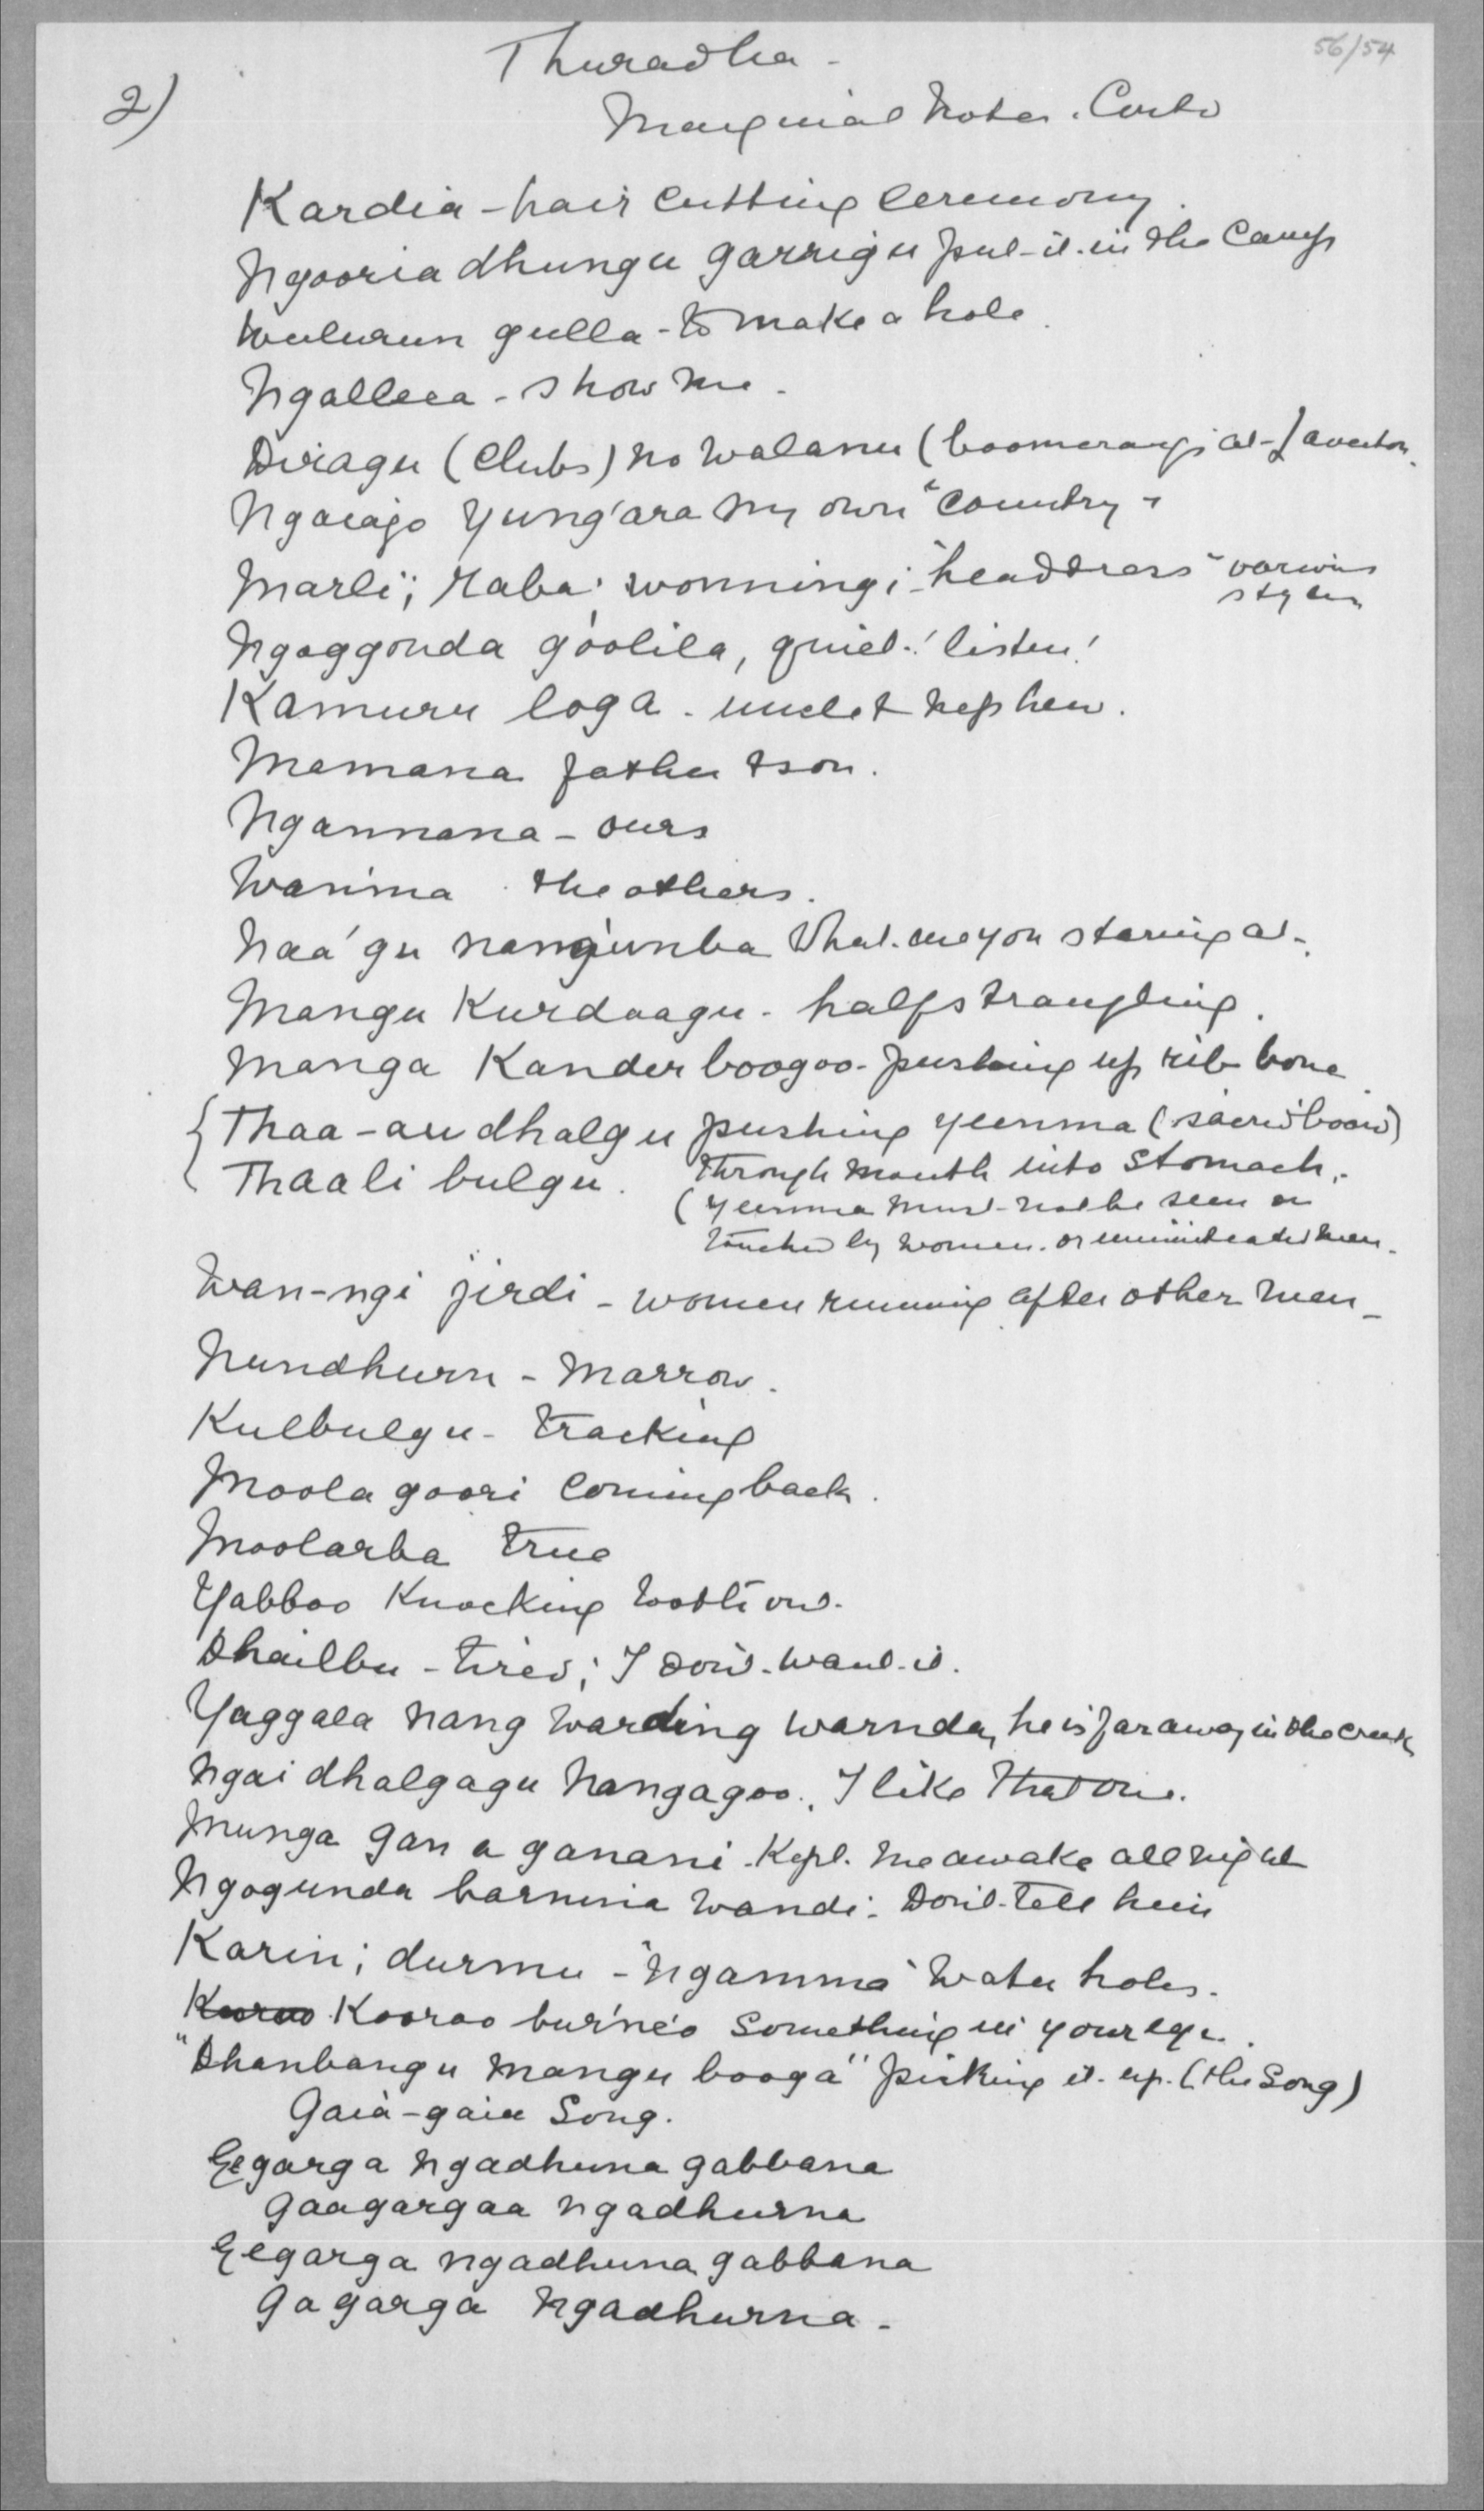 56/54
Thuradha -
2)
Marginal Notes. Contd
Kardia - hair cutting ceremony.
Ngooria dhungu garrigu put it in the camp
Wulurun gulla - to make a hole.
Ngalleea - show me.
Diragu (clubs) no walanu (boomerangs) at
Ngaiajo yung'ara my own "country"
Marli; raba; wonningi - "headdress" various
styles
Ngaggonda goolila, quiet! listen!
Kamuru loga - uncle & nephew.
Mamana father & son.
Ngannana - ours
Warima the others.
Naa'gu nang'unba What are you staring at.
Mangu Kurdaagu - half strangling.
Manga Kander boogoo - pushing up rib bone
{ Thaa-au dhalgu pushing yeenma (sacred board)
{ Thaali bulgu. through mouth into stomach.
(yeenma must not be seen or
touched by women or uninitiated men.
Wan-ngi jirdi - women running after other men -
Nundhurn - marrow.
Kulbulgu - tracking
Moola goori coming back.
Moolarba true
Yabboo Knocking tooth out.
Dhailbu - tired; I don't want it.
Yaggala nang warding warnda, he is far away in the creek
Ngai dhalgagu nangagoo. I like that one.
Munga gan a ganani. Kept me awake all night
Ngogunda barnina wandi. Don't tell him
Karin; durmu - "ngamma" water holes.
Kooroo Kooroo burn'e'o something in your eye.
"Dhanbangu mangu booga" picking it up. (the song)
Gaia-gaia Song.
Eegarga ngadhuna gabbana
Gaagargaa ngadhurna
Eegarga ngadhuna gabbana
Gagarga ngadhurna.